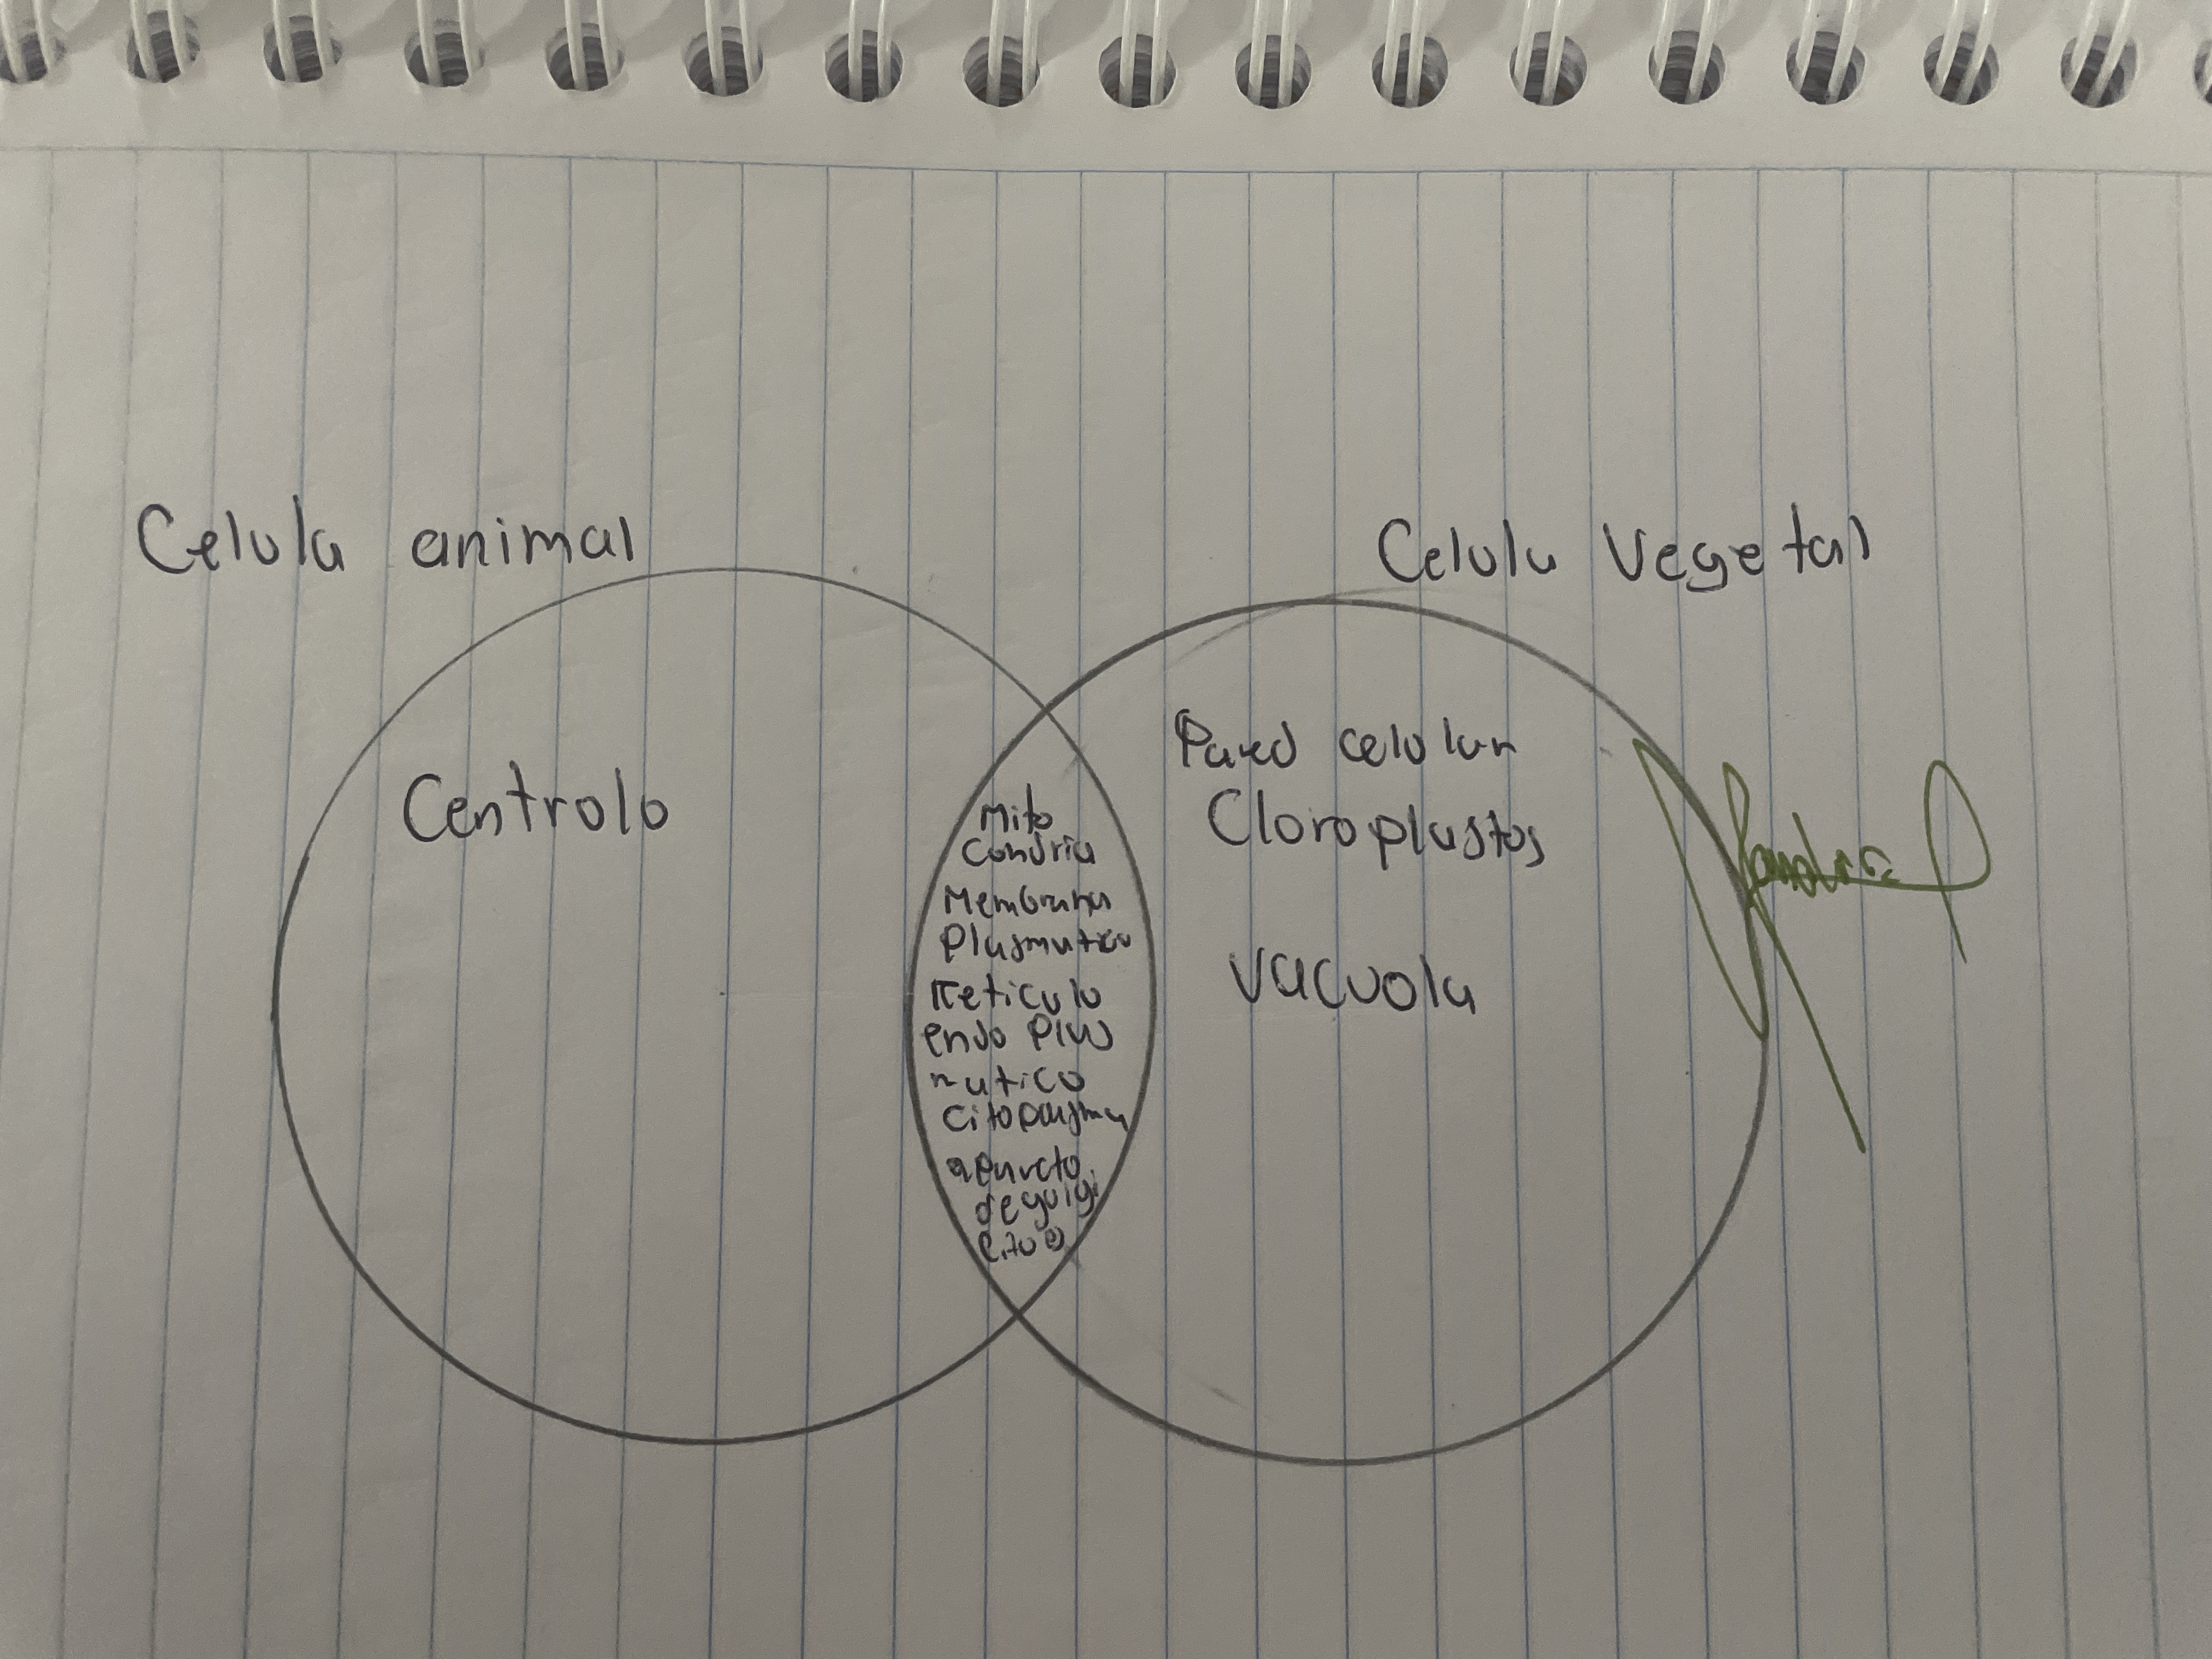 Celula animal
Celula Vegetal
Centrolo
Mito
condria
Membrana
Plasmatica
Reticulo
endo Plas
matico
Citoplasma
aparcto
de golgi
Pared celular
Cloroplastos
Vacuola